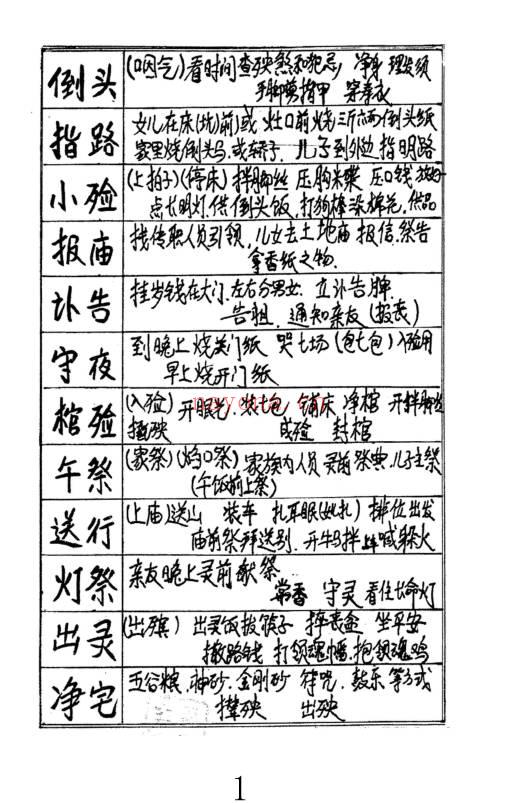 倒头
(咽气)看时间查殃煞和犯忌 净身 理发须
手脚剪指甲 穿寿衣
指路
女儿在床(炕)前)或 灶口前烧三斤六两倒头纸
家里烧倒头马 或轿子. 儿子到外边 指明路
小殓
(上拍子)(停床) 拌脚丝 压胸米碟 压口钱
点长明灯.供倒头饭,打狗棒染棉花.供品
报庙
找传职人员引领,儿女去土地庙 报信.祭告
拿香纸之物.
讣告
挂岁钱在大门.左右分男女 立讣告牌
告祖. 通知亲友(报丧)
守夜
到晚上烧关门纸 哭七场(包七包)入殓用
早上烧开门纸
棺殓
(入殓) 开眼光 装七包 铺床 净棺 开拌脚丝
撵殃 成殓 封棺
午祭
(家祭)(焰口祭) 家族内人员灵前祭典.儿子主祭
(午饭前上祭)
送行
(上庙)送山 装车 扎耳眼(女扎) 排位出发
庙前祭拜送别. 喊躲火
灯祭
亲友晚上灵前献祭
常香 守灵 看住长命灯
出灵
(出殡) 出灵饭拔筷子 摔丧盆 坐平安
撒路钱 打领魂幡.抱领魂鸡
净宅
五谷粮.神砂.金刚砂 符咒.鼓乐等方式
撵殃 出殃
1